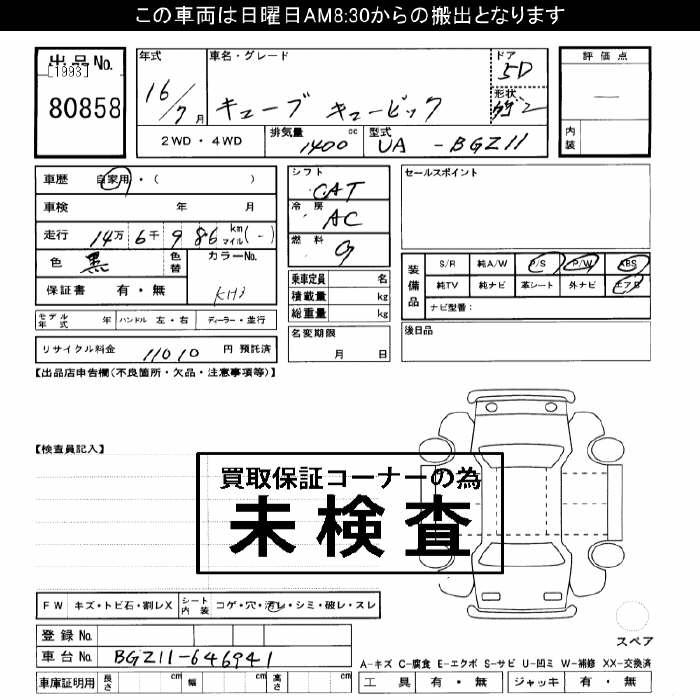 この車両は日曜日AM8:30からの搬出となります
出品No.
[1993]
80858
年式
16/7月
車名・グレード
キューブ キュービック
ドア
5D
形状
評価点
—
内装
2WD・4WD
排気量
1400 cc
型式
UA - BGZ11
車歴 自家用・( )
車検 年 月
走行 14万 6千 9 86 km マイル (-)
色 黒 色替
カラーNo.
KH3
保証書 有・無
モデル年式 年 ハンドル 左・右 ディーラー・並行
リサイクル料金 11010 円 預託済
シフト
CAT
冷房
AC
燃料
G
乗車定員 名
積載量 kg
総重量 kg
名変期限
月 日
セールスポイント
装備品
S/R 純A/W P/S P/W ABS
純TV 純ナビ 革シート 外ナビ エアB
ナビ型番:
後日品
【出品店申告欄(不良箇所・欠品・注意事項等)】
【検査員記入】
買取保証コーナーの為
未検査
FW キズ・トビ石・割レX シート内装 コゲ・穴・汚レ・シミ・破レ・スレ
登録No.
車台No. BGZ11-646941
車庫証明用 長さ cm 幅 cm 高さ cm
スペア
A-キズ C-腐食 E-エクボ S-サビ U-凹ミ W-補修 XX-交換済
工具 有・無 ジャッキ 有・無